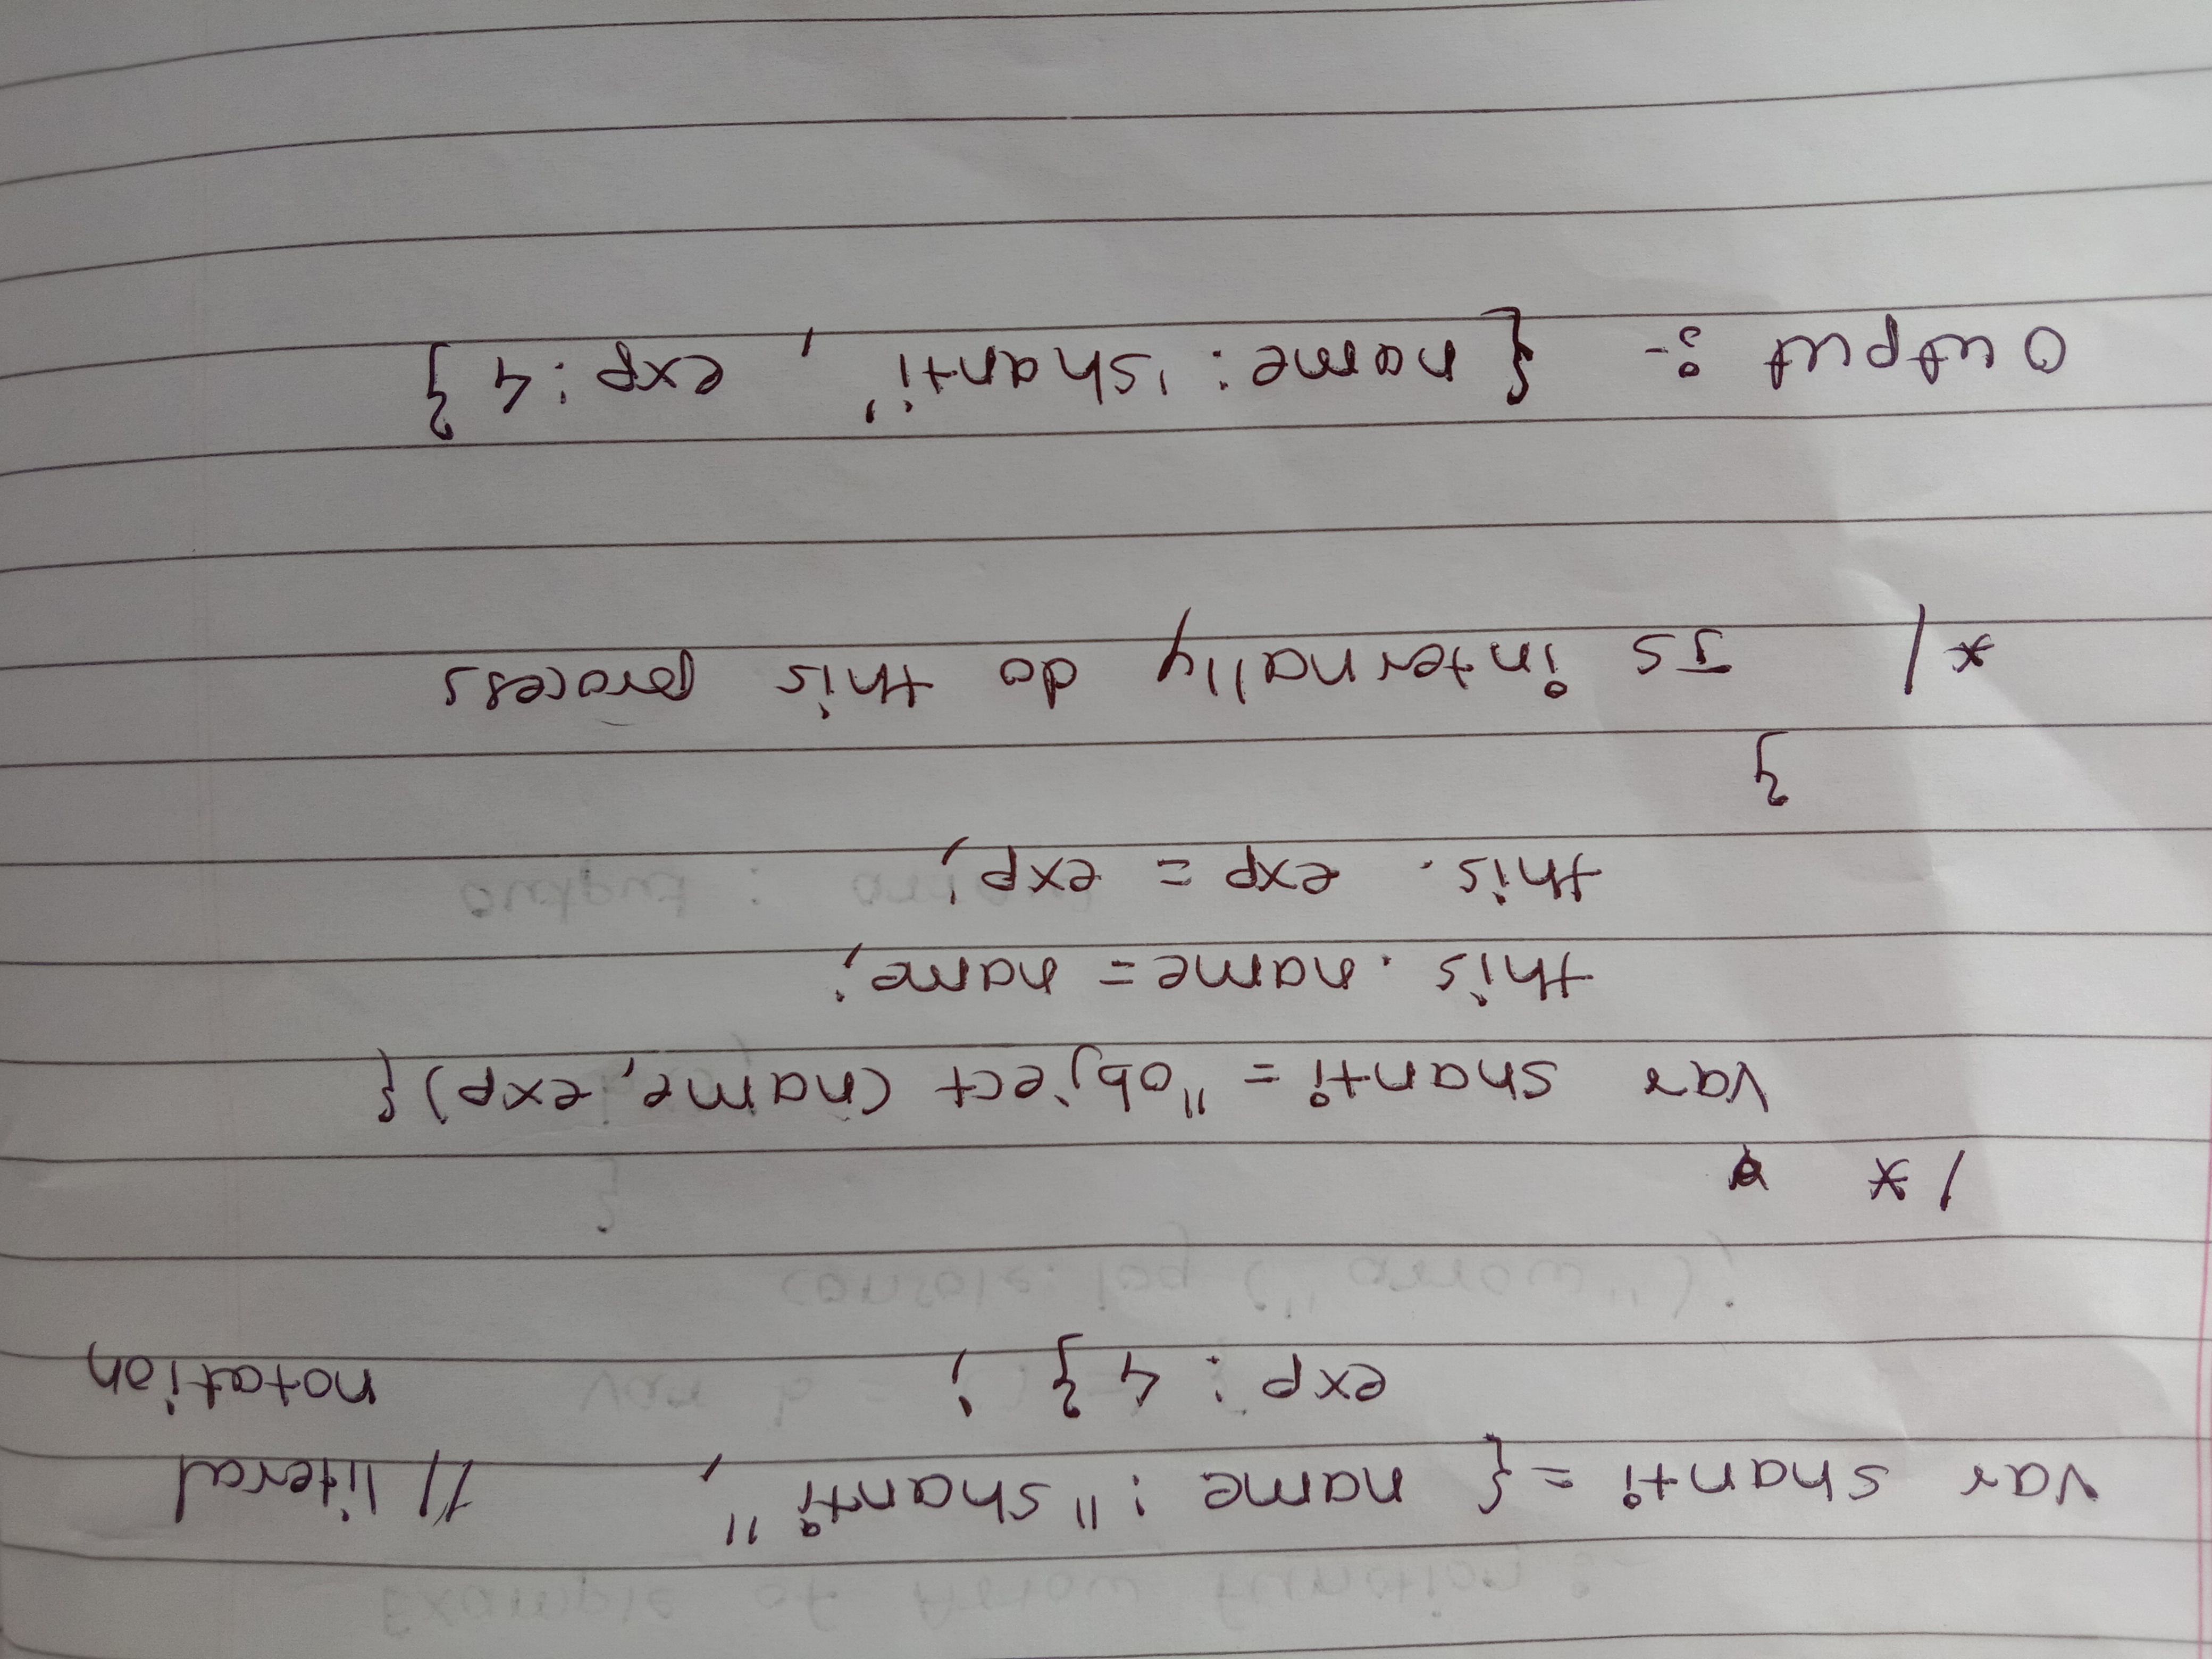 var shanti = { name : "shanti", // literal
exp : 4 } ; notation
/*
var shanti = "object (name, exp) {
this . name = name;
this . exp = exp;
}
*/ JS internally do this process
output :- { name : 'shanti' , exp : 4 }